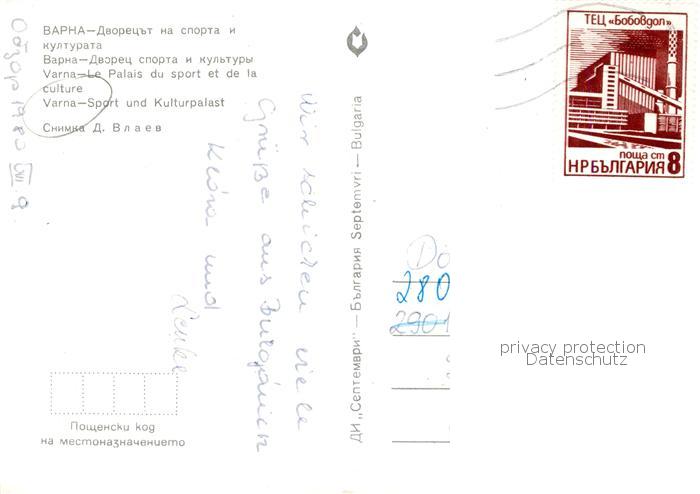 ВАРНА—Дворецът на спорта и
културата
Варна—Дворец спорта и культуры
Varna—Le Palais du sport et de la
culture
Varna—Sport und Kulturpalast
Снимка Д. Влаев
1980 VIII. 9.
Wir schicken viele
Grüße aus Bulgarien
Klára und
Пощенски код
на местоназначението
ДИ „Септември" — България Septemvri — Bulgaria
ТЕЦ «Бобовдол»
поща ст 8
НРБЪЛГАРИЯ
280
2901
privacy protection
Datenschutz